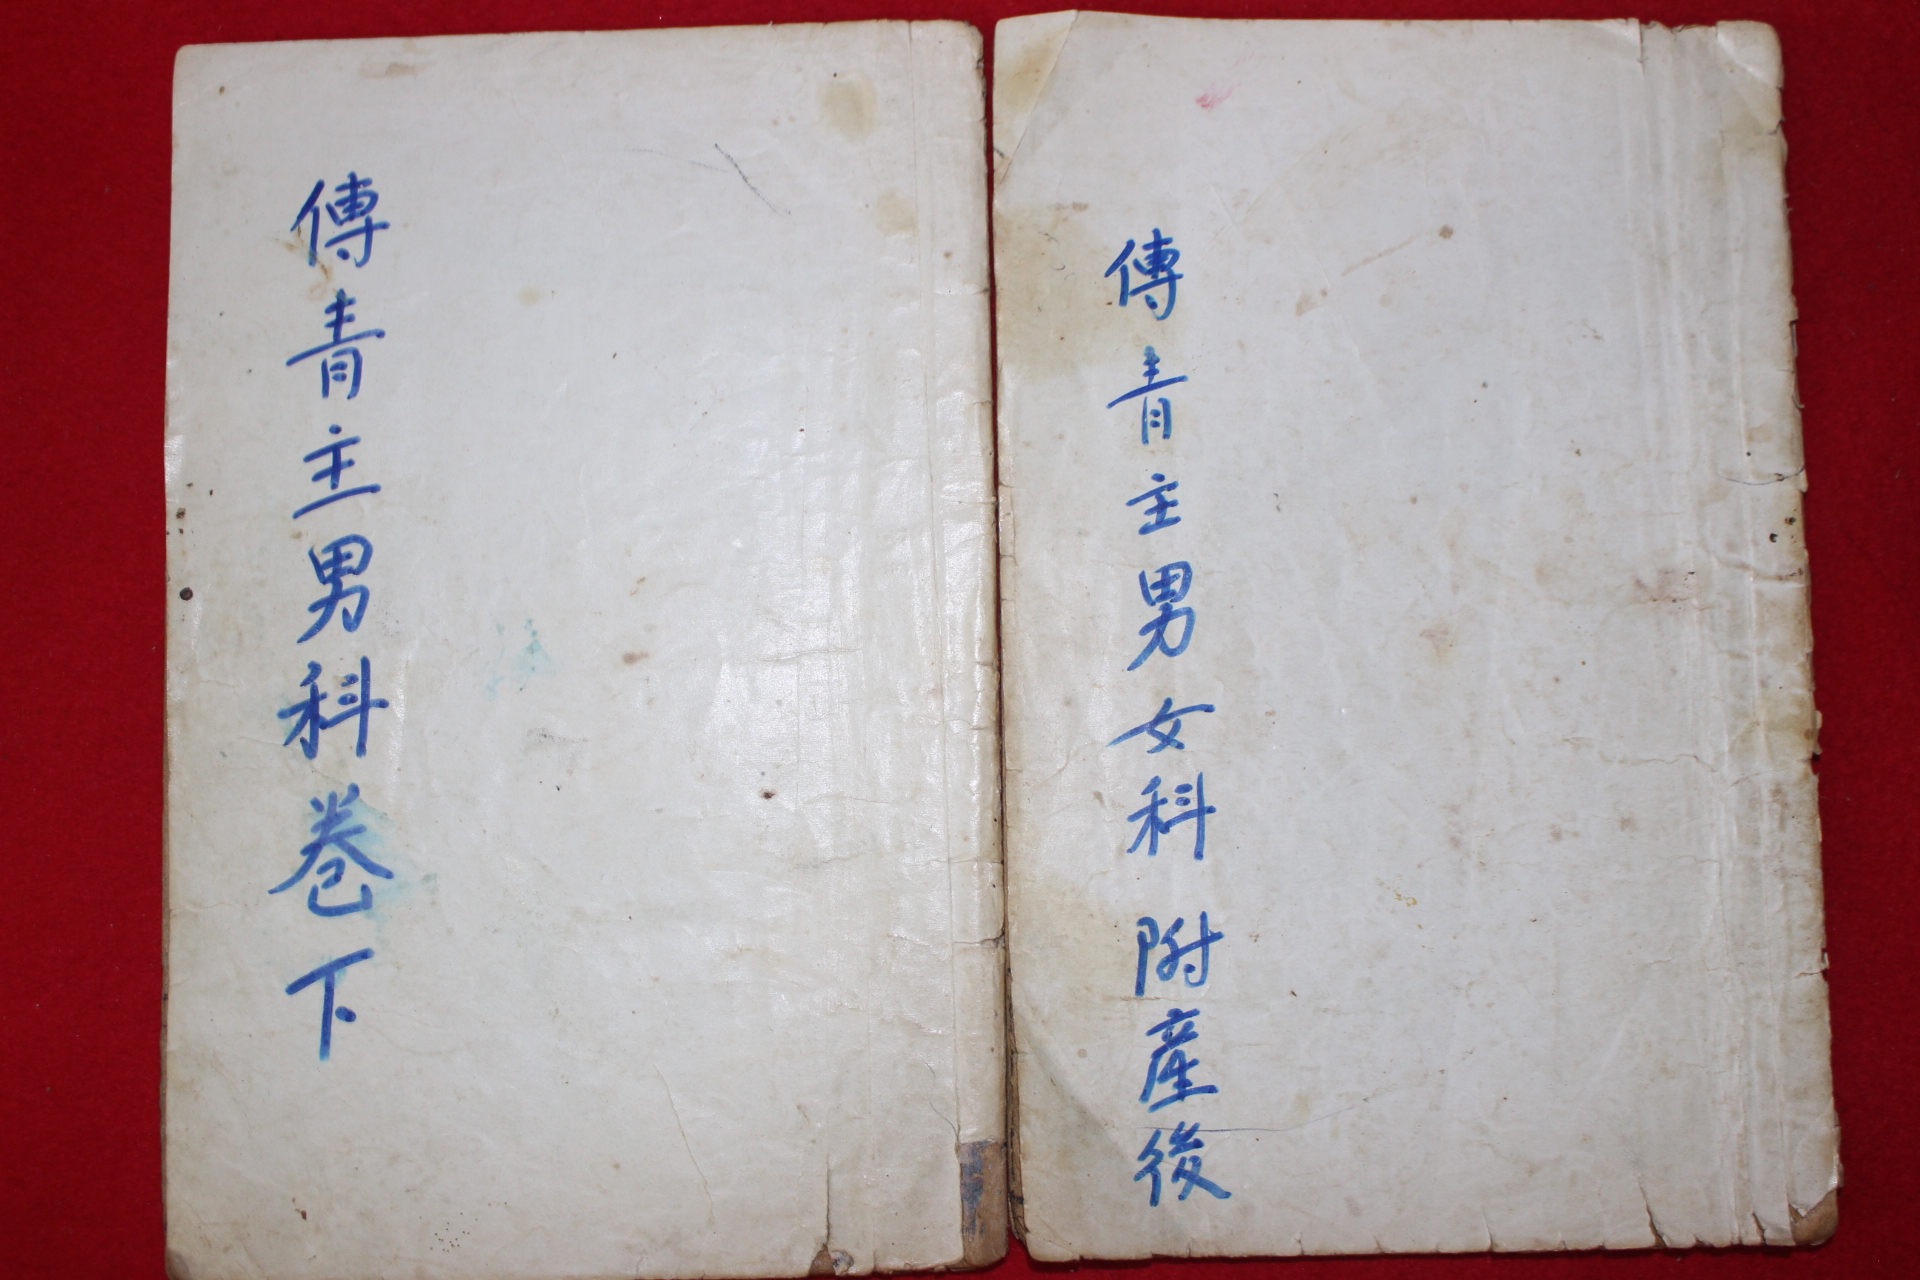 傅青主男女科 附產後
傅青主男科卷下